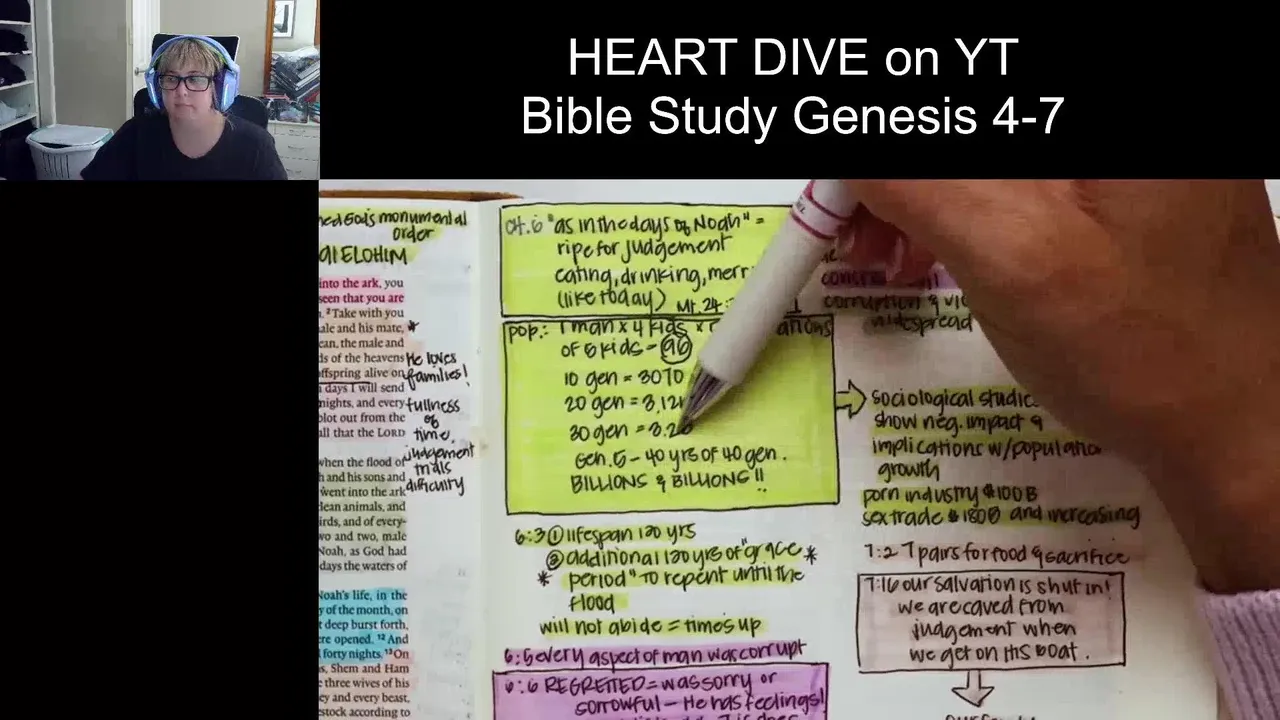 HEART DIVE on YT
Bible Study Genesis 4-7
God's monumental
order
ELOHIM
into the ark, you
seen that you are
2 Take with you
ale and his mate,
ean, the male and
ds of the heavens
ffspring alive on
days I will send
nights, and every
blot out from the
all that the LORD
when the flood of
h and his sons and
went into the ark
lean animals, and
irds, and of every-
wo and two, male
Noah, as God had
days the waters of
Noah's life, in the
y of the month, on
t deep burst forth,
re opened. 12 And
forty nights. 13 On
s, Shem and Ham
e three wives of his
ey and every beast,
estock according to
*
He loves
families!
fullness
of
time.
judgement
trials
difficulty
CH.6 "as in the days of Noah" =
ripe for judgement
eating, drinking, merr
(like today) Mt. 24:
pop: 1 man x 4 kids x
of 6 kids = 96
10 gen = 3070
20 gen = 3.12
30 gen = 3.2
Gen. 5 - 40 yrs of 40 gen.
BILLIONS & BILLIONS!!
6:3 ① lifespan 120 yrs
② additional 120 yrs of "grace *
* period" to repent until the
flood
will not abide = time's up
6:5 every aspect of man was corrupt
6:6 REGRETTED = was sorry or
sorrowful - He has feelings!
corruption & vio
widespread
sociological studie
show neg. impact &
implications w/population
growth
porn industry $100B
sex trade $180B and increasing
7:2 7 pairs for food & sacrifice
7:16 our salvation is shut in!
we are saved from
judgement when
we get on His boat.